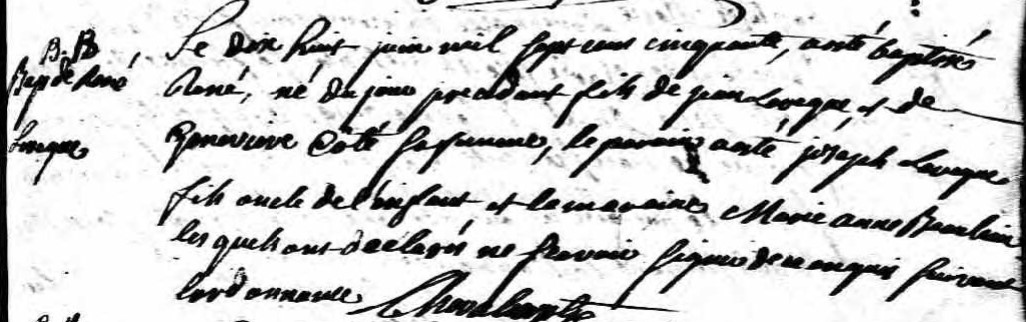 B. B
Bap de René
Leveque
Le dix huit juin mil sept cent cinquante, a esté baptisé
René, né du jour precedant fils de jean Leveque, et de
Genevieve Côté sa femme, le parain a esté joseph Leveque
fils oncle de l'enfant et la maraine Marie anne
les quels ont declarés ne sçavoir signer de ce enquis suivant
lordonnance